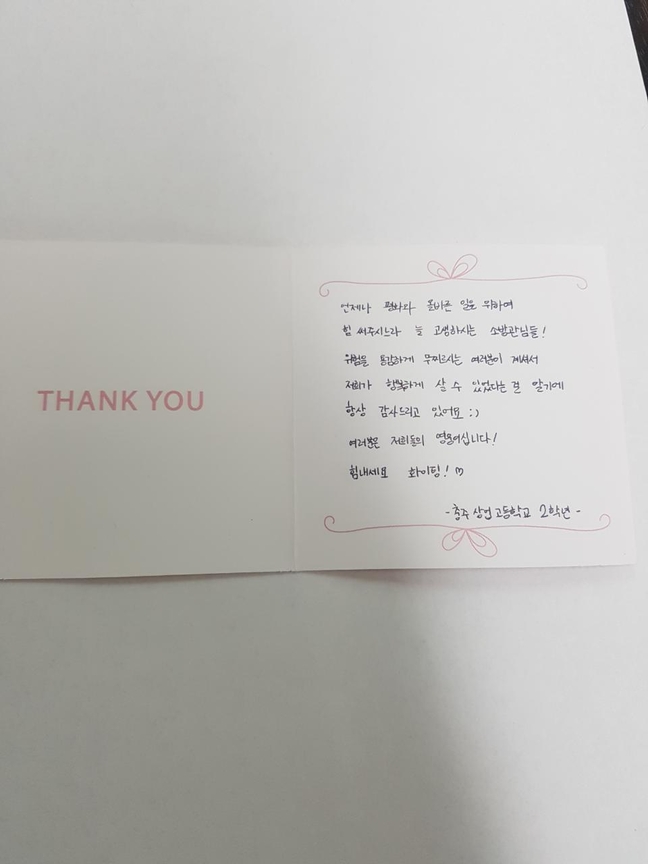 THANK YOU
언제나 평화와 올바른 일을 위하여
힘 써주시느라 늘 고생하시는 소방관님들!
위험을 용감하게 무찌르시는 여러분이 계셔서
저희가 행복하게 살 수 있었다는 걸 알기에
항상 감사드리고 있어요 :)
여러분은 저희들의 영웅이십니다!
힘내세요 화이팅! ♡
- 충주 상업고등학교 2학년 -